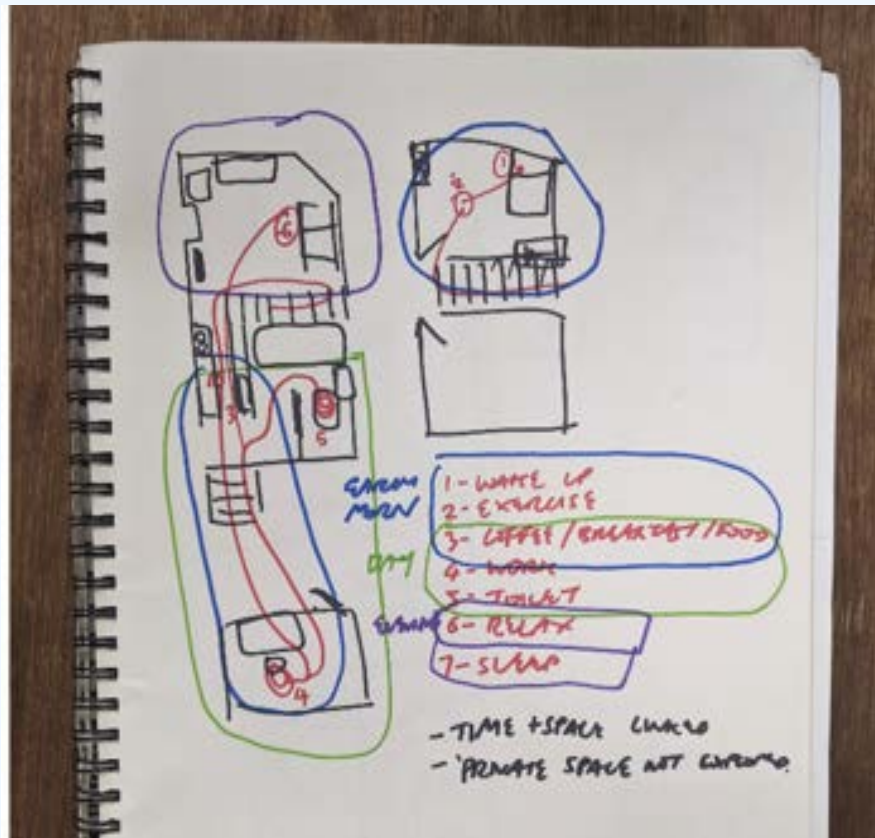 6
1
2
3
5
4
EARLY
MORN
DAY
1 - WAKE UP
2 - EXERCISE
3 - COFFEE / BREAKFAST / FOOD
4 - WORK
5 - TOILET
6 - RELAX
7 - SLEEP
- TIME + SPACE LINKED
- 'PRIVATE SPACE NOT